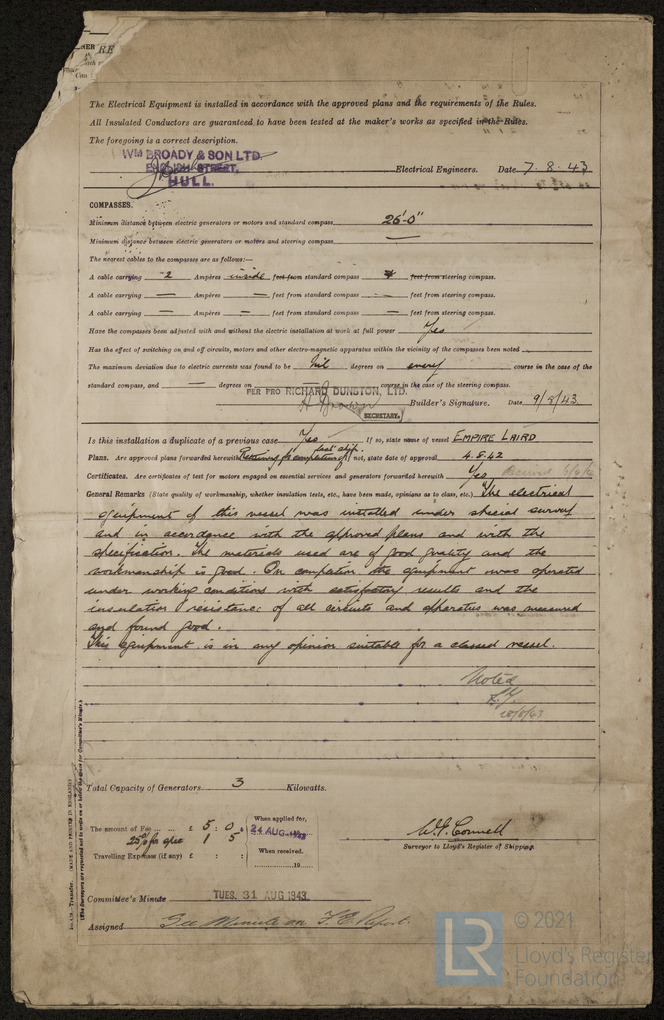 RE
The Electrical Equipment is installed in accordance with the approved plans and the requirements of the Rules.
All Insulated Conductors are guaranteed to have been tested at the maker's works as specified in the Rules.
The foregoing is a correct description.
WM BROADY & SON LTD.
ENGLISH STREET,
HULL.
Electrical Engineers. Date 7. 8. 43
COMPASSES.
Minimum distance between electric generators or motors and standard compass 26'-0"
Minimum distance between electric generators or motors and steering compass —
The nearest cables to the compasses are as follows:—
A cable carrying 2 Ampères inside feet from standard compass feet from steering compass.
A cable carrying — Ampères — feet from standard compass — feet from steering compass.
A cable carrying — Ampères — feet from standard compass — feet from steering compass.
Have the compasses been adjusted with and without the electric installation at work at full power Yes
Has the effect of switching on and off circuits, motors and other electro-magnetic apparatus within the vicinity of the compasses been noted
The maximum deviation due to electric currents was found to be Nil degrees on every course in the case of the
standard compass, and — degrees on course in the case of the steering compass.
PER PRO RICHARD DUNSTON, LTD.
SECRETARY.
Builder's Signature. Date 9/8/43
Is this installation a duplicate of a previous case Yes If so, state name of vessel EMPIRE LAIRD
Plans. Are approved plans forwarded herewith Retaining for completion of last ship. If not, state date of approval 4.5.42
Certificates. Are certificates of test for motors engaged on essential services and generators forwarded herewith Yes
General Remarks (State quality of workmanship, whether insulation tests, etc., have been made, opinions as to class, etc.) The electrical
equipment of this vessel was installed under special survey
and in accordance with the approved plans and with the
specification. The materials used are of good quality and the
workmanship is good. On completion the equipment was operated
under working conditions with satisfactory results and the
insulation resistance of all circuits and apparatus was measured
and found good.
This equipment is in my opinion suitable for a classed vessel.
Noted
Total Capacity of Generators 3 Kilowatts.
The amount of Fee ... ... £ 5 : 0 .
25% 1 5
Travelling Expenses (if any) £ : :
When applied for,
24 AUG 1943
When received.
19
W. G. Connell
Surveyor to Lloyd's Register of Shipping.
Committee's Minute TUES. 31 AUG 1943
Assigned See Minute on F.E. Report.
Transfer. (MADE AND PRINTED IN ENGLAND)
(The Surveyors are requested not to write on or below the space for Committee's Minute.)
LR
© 2021
Lloyd's Register
Foundation